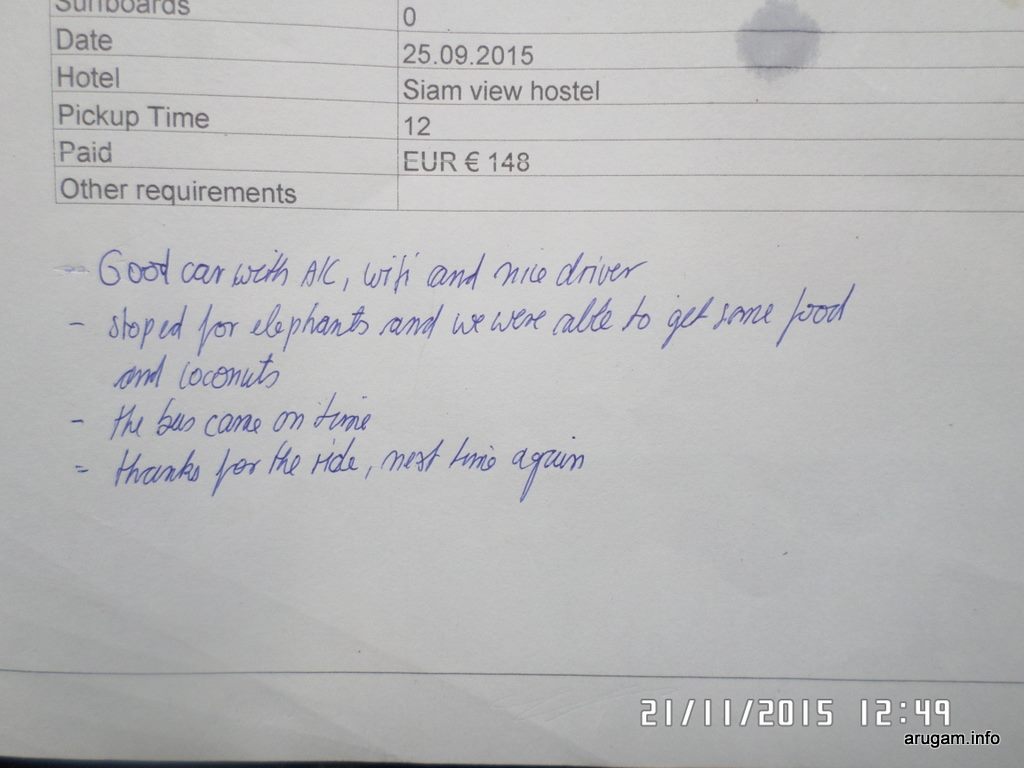 Surfboards 0
Date 25.09.2015
Hotel Siam view hostel
Pickup Time 12
Paid EUR € 148
Other requirements
- Good car with A/C, wifi and nice driver
- stoped for elephants and we were able to get some food
and coconuts
- the bus came on time
- thanks for the ride, next time again
21/11/2015 12:49
arugam.info